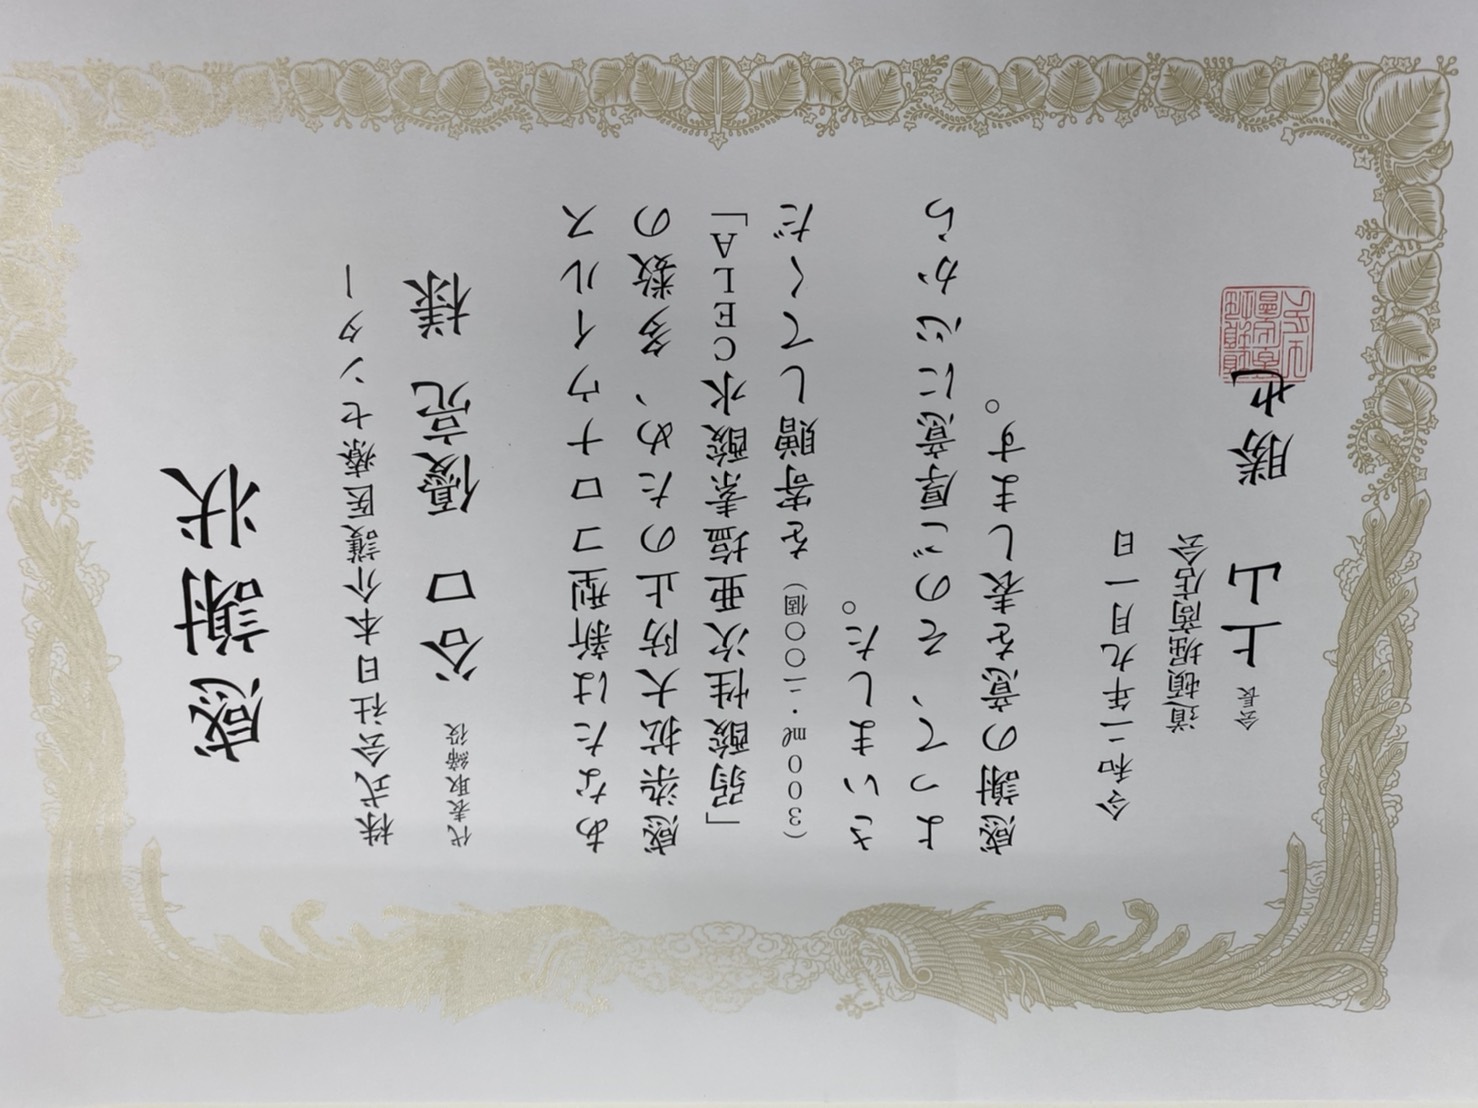 感謝状
株式会社日本介護医療センター
代表取締役 谷口 優亮 様
あなたは新型コロナウイルス
感染拡大防止のため、多数の
「弱酸性次亜塩素酸水CELA」
(300㎖・二〇〇個)を寄贈してくだ
さいました。
よって、そのご厚意に心から
感謝の意を表します。
令和二年九月一日
道頓堀商店会
会長 上山 勝也